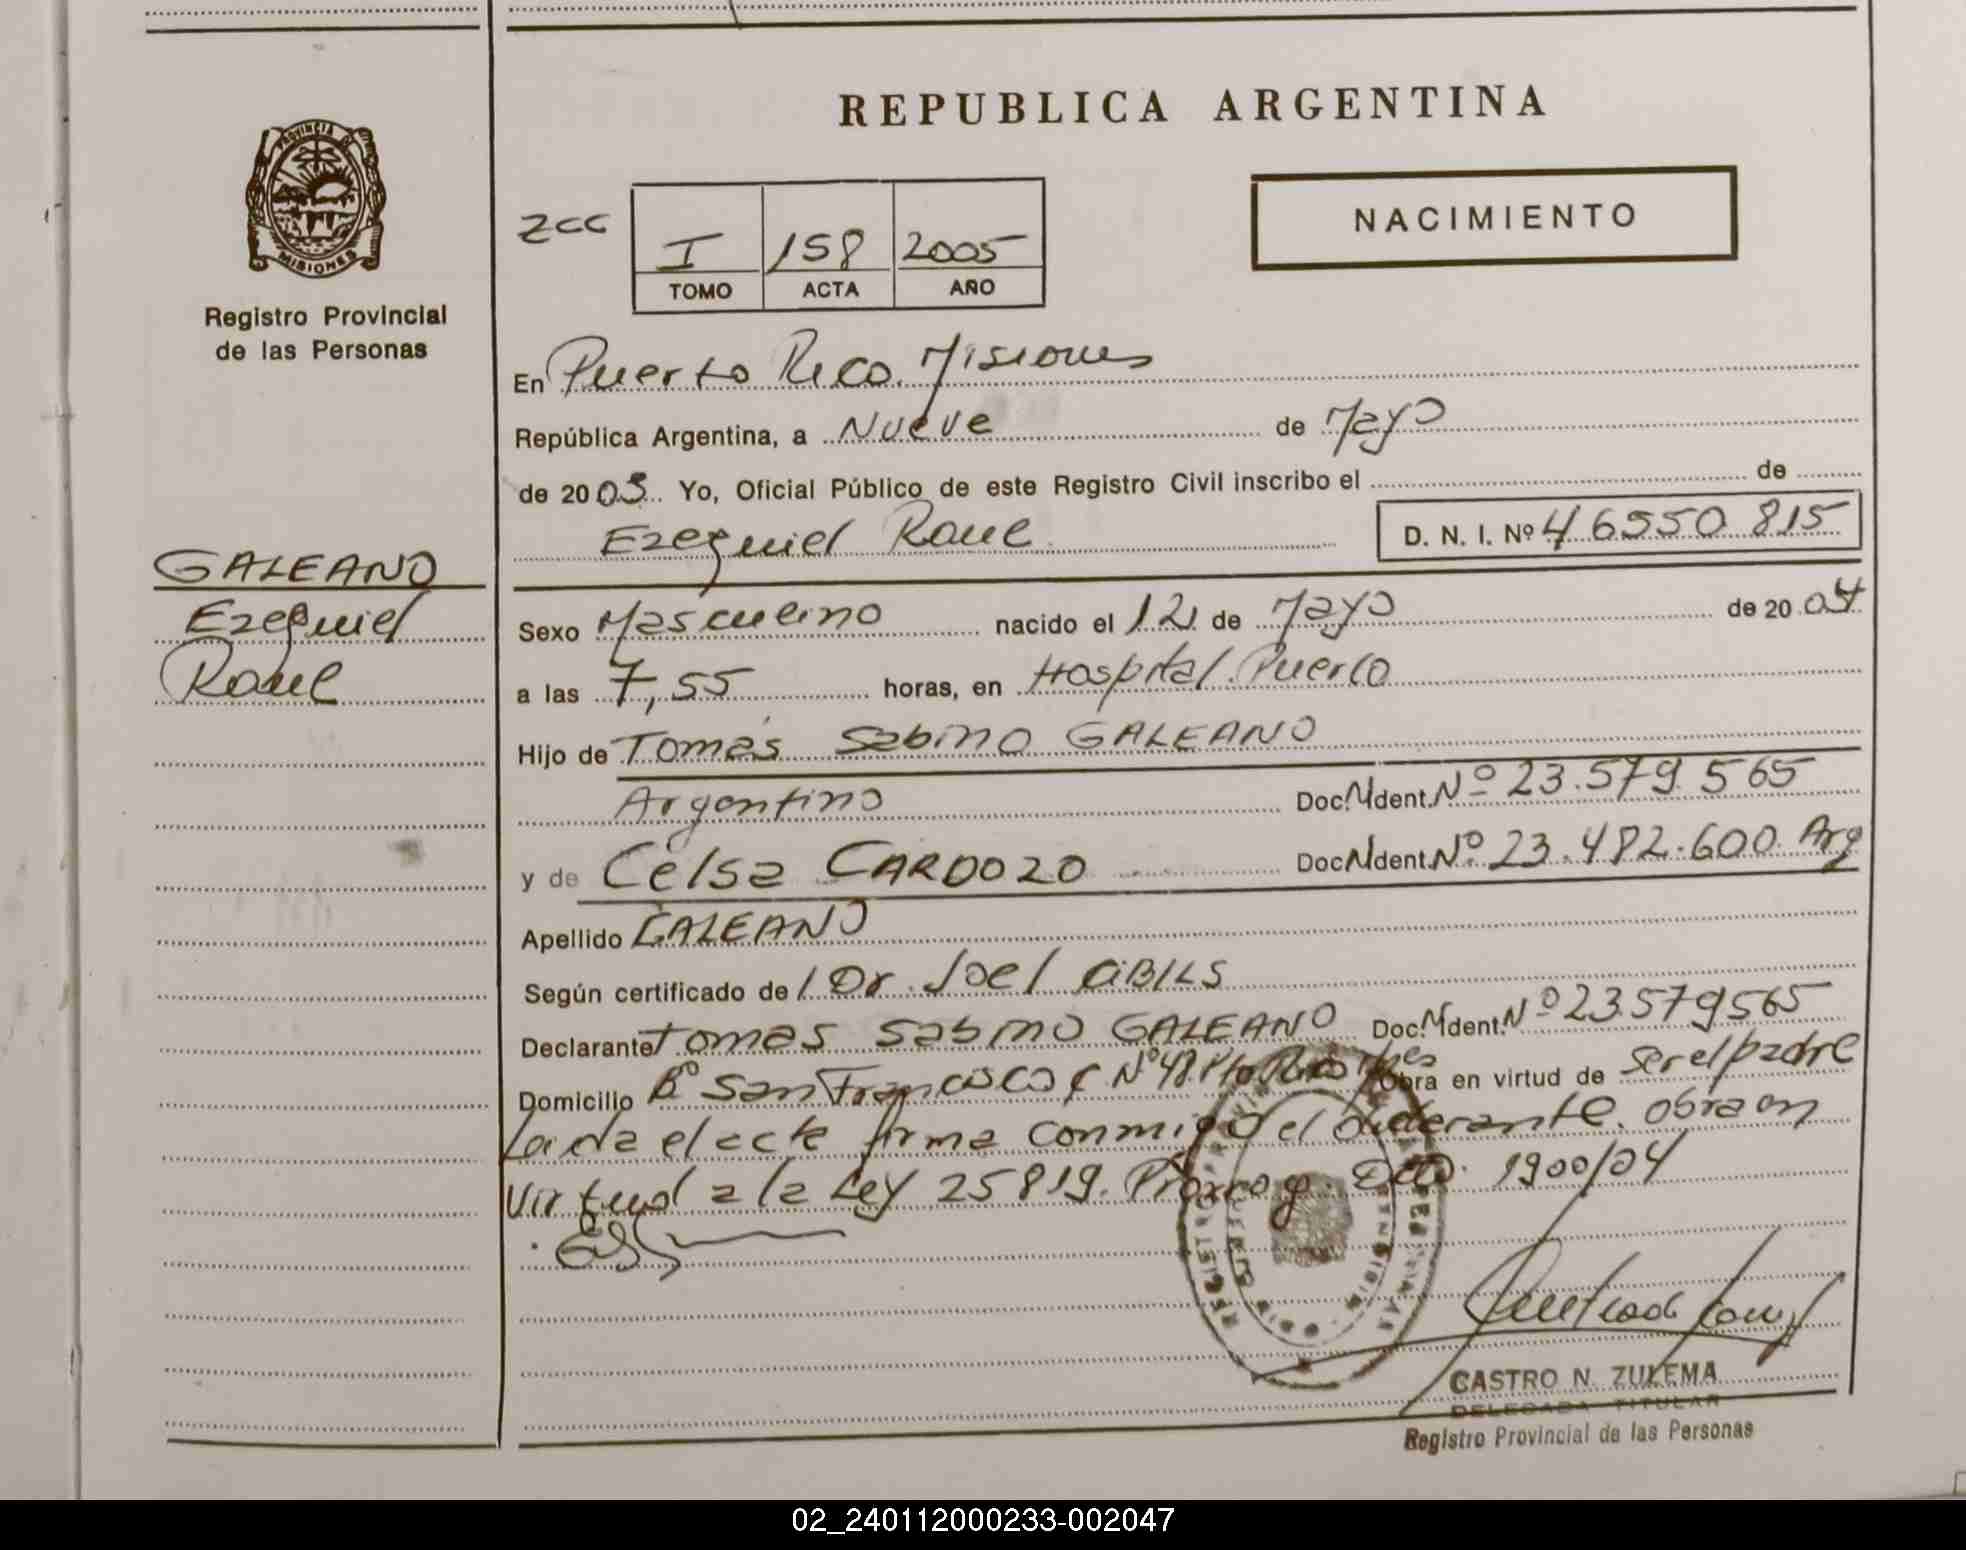 REPUBLICA ARGENTINA
PROVINCIA DE
MISIONES
Registro Provincial
de las Personas
zcc
I 158 2005
TOMO ACTA AÑO
NACIMIENTO
En Puerto Rico. Misiones
República Argentina, a Nueve de Mayo
de 2005 Yo, Oficial Público de este Registro Civil inscribo el de
Ezequiel Raul D. N. I. Nº 46550.815
GALEANO
Ezequiel
Raul
Sexo Masculino nacido el 12 de Mayo de 2004
a las 7,55 horas, en Hospital. Puerto
Hijo de Tomás Sabino GALEANO
Argentino Doc. Ident. Nº 23.579.565
y de Celsa CARDOZO Doc. Ident. Nº 23.482.600. Arg
Apellido GALEANO
Según certificado de Dr. Joel ABILS
Declarante Tomas Sabino GALEANO Doc. Ident. Nº 23579565
Domicilio Bº San Francisco C Nº 48 Pto Rico Obra en virtud de ser el padre
el acta firma conmigo el declarante. obra en
Virtud a la Ley 25819. Dcto. 1900/04
CASTRO N. ZULEMA
DELEGADA TITULAR
Registro Provincial de las Personas
02_240112000233-002047